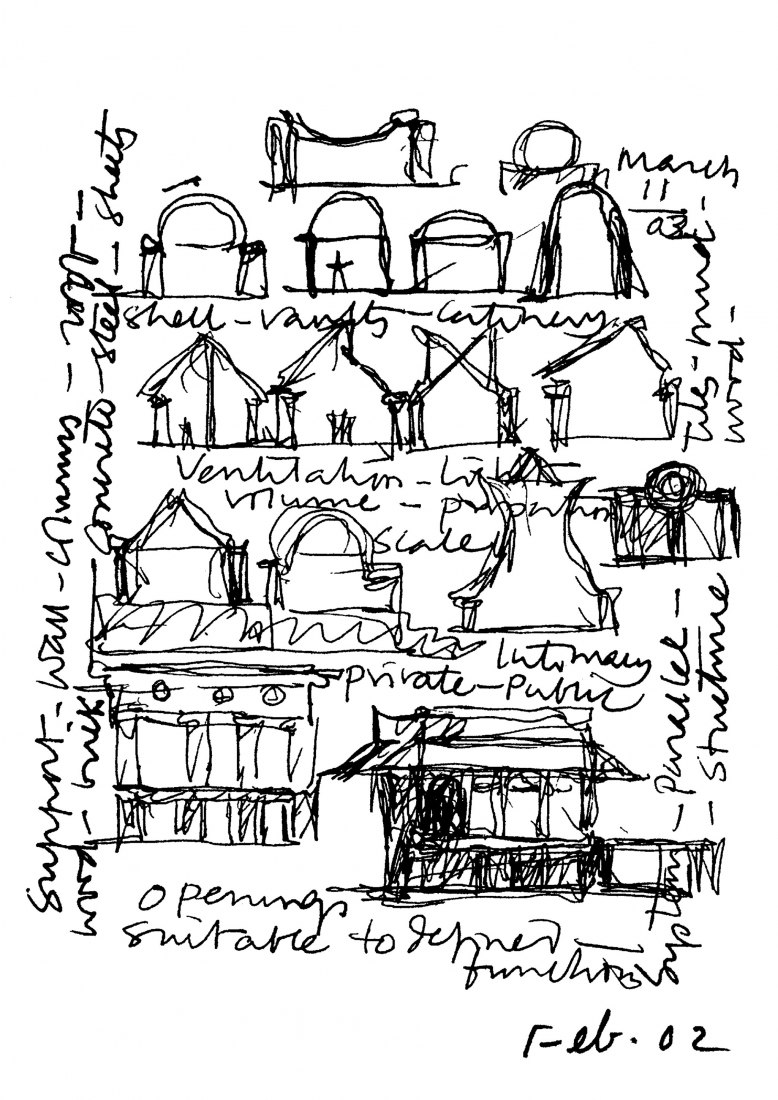 March
11
03
shell - vaults - catenery
Ventilation - light
volume - proportion
scale
Intimacy
private - public
Openings
suitable to defined -
functions
Feb. 02
Support - wall - columns -
wood - brick - concrete - steel - sheets
Tiles - mud -
wood -
System - parallel -
- structure